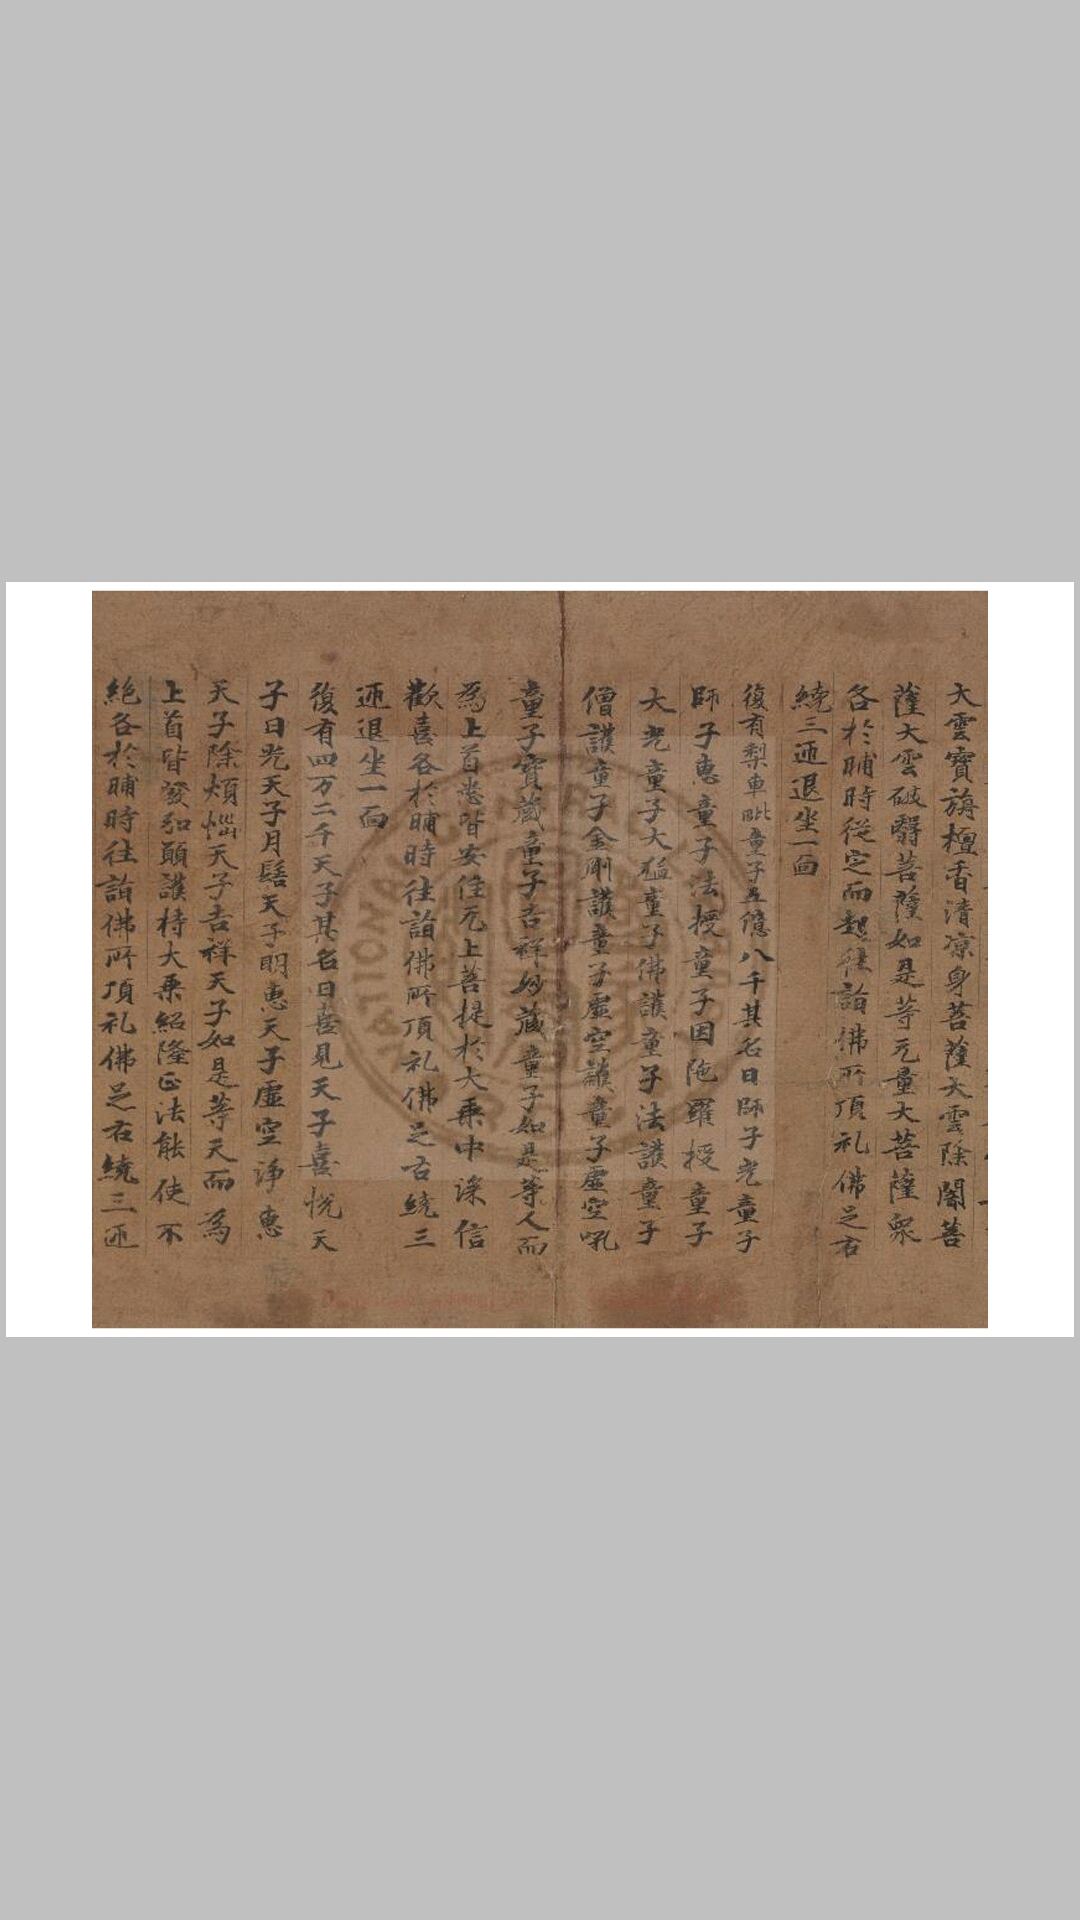 大雲寶旃檀香清涼身菩薩大雲除闇菩
薩大雲破翳菩薩如是等无量大菩薩眾
各於晡時從定而起往詣佛所頂礼佛足右
繞三迊退坐一面
復有梨車毗童子五億八千其名曰師子光童子
師子惠童子法授童子因陁羅授童子
大光童子大猛童子佛護童子法護童子
僧護童子金剛護童子虛空護童子虛空吼
童子寶藏童子吉祥妙藏童子如是等人而
為上首悉皆安住无上菩提於大乘中深信
歡喜各於晡時往詣佛所頂礼佛足右繞三
迊退坐一面
復有四万二千天子其名曰喜見天子喜悅天
子日光天子月髻天子明惠天子虛空淨惠
天子除煩惱天子吉祥天子如是等天而為
上首皆發弘願護持大乘紹隆正法能使不
絕各於晡時往詣佛所頂礼佛足右繞三迊